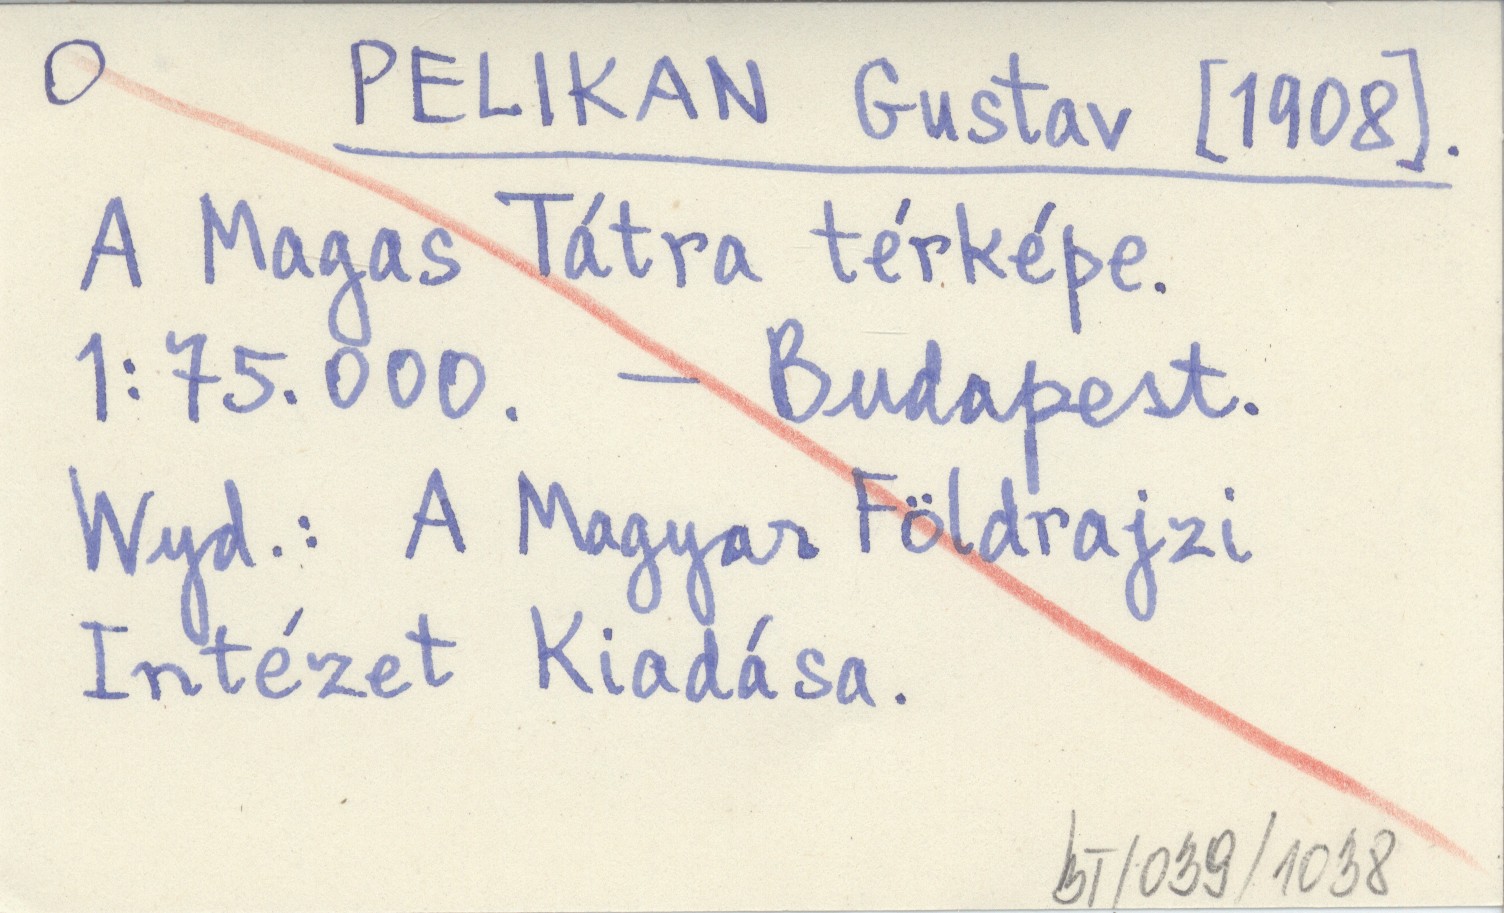 O PELIKAN Gustav [1908].
A Magas Tátra térképe.
1:75.000. — Budapest.
Wyd.: A Magyar Földrajzi
Intézet Kiadása.
BT/039/1038